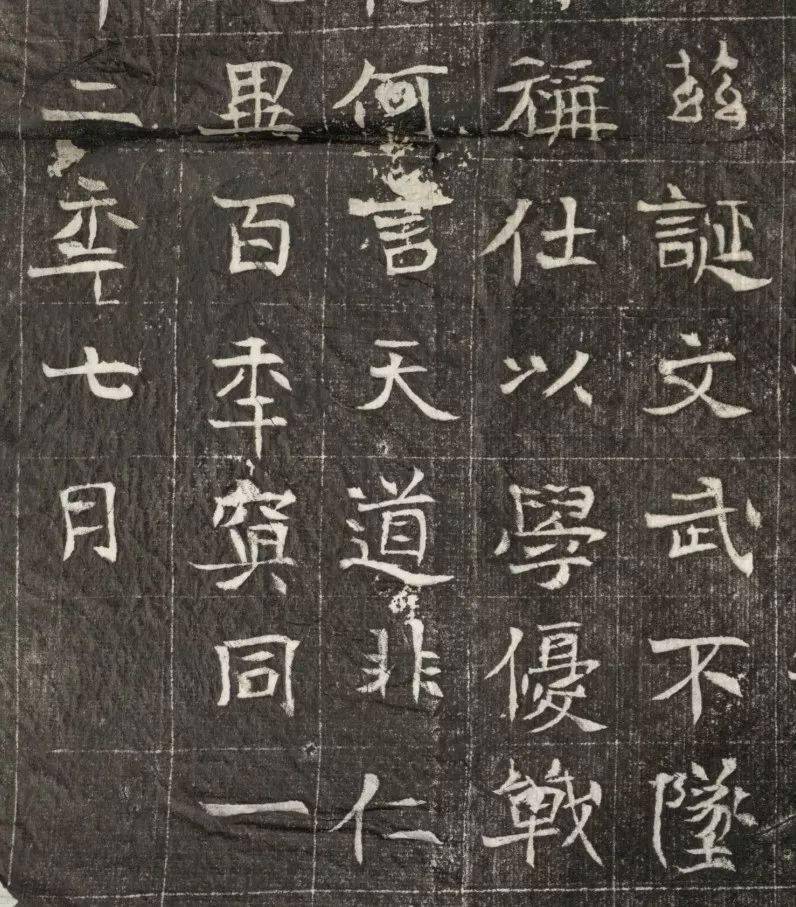 茲誕文武不墜
稱仕以學優戰
何言天道非仁
異百秊㝠同一
二秊七月